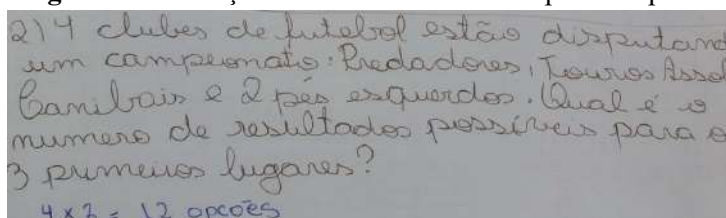 2) 4 clubes de futebol estão disputand
um campeonato: Predadores, Touros Asso
Canibais e 2 pés esquerdos. Qual é o
numero de resultados possíveis para o
3 primeiros lugares?
4 x 3 = 12 opcões